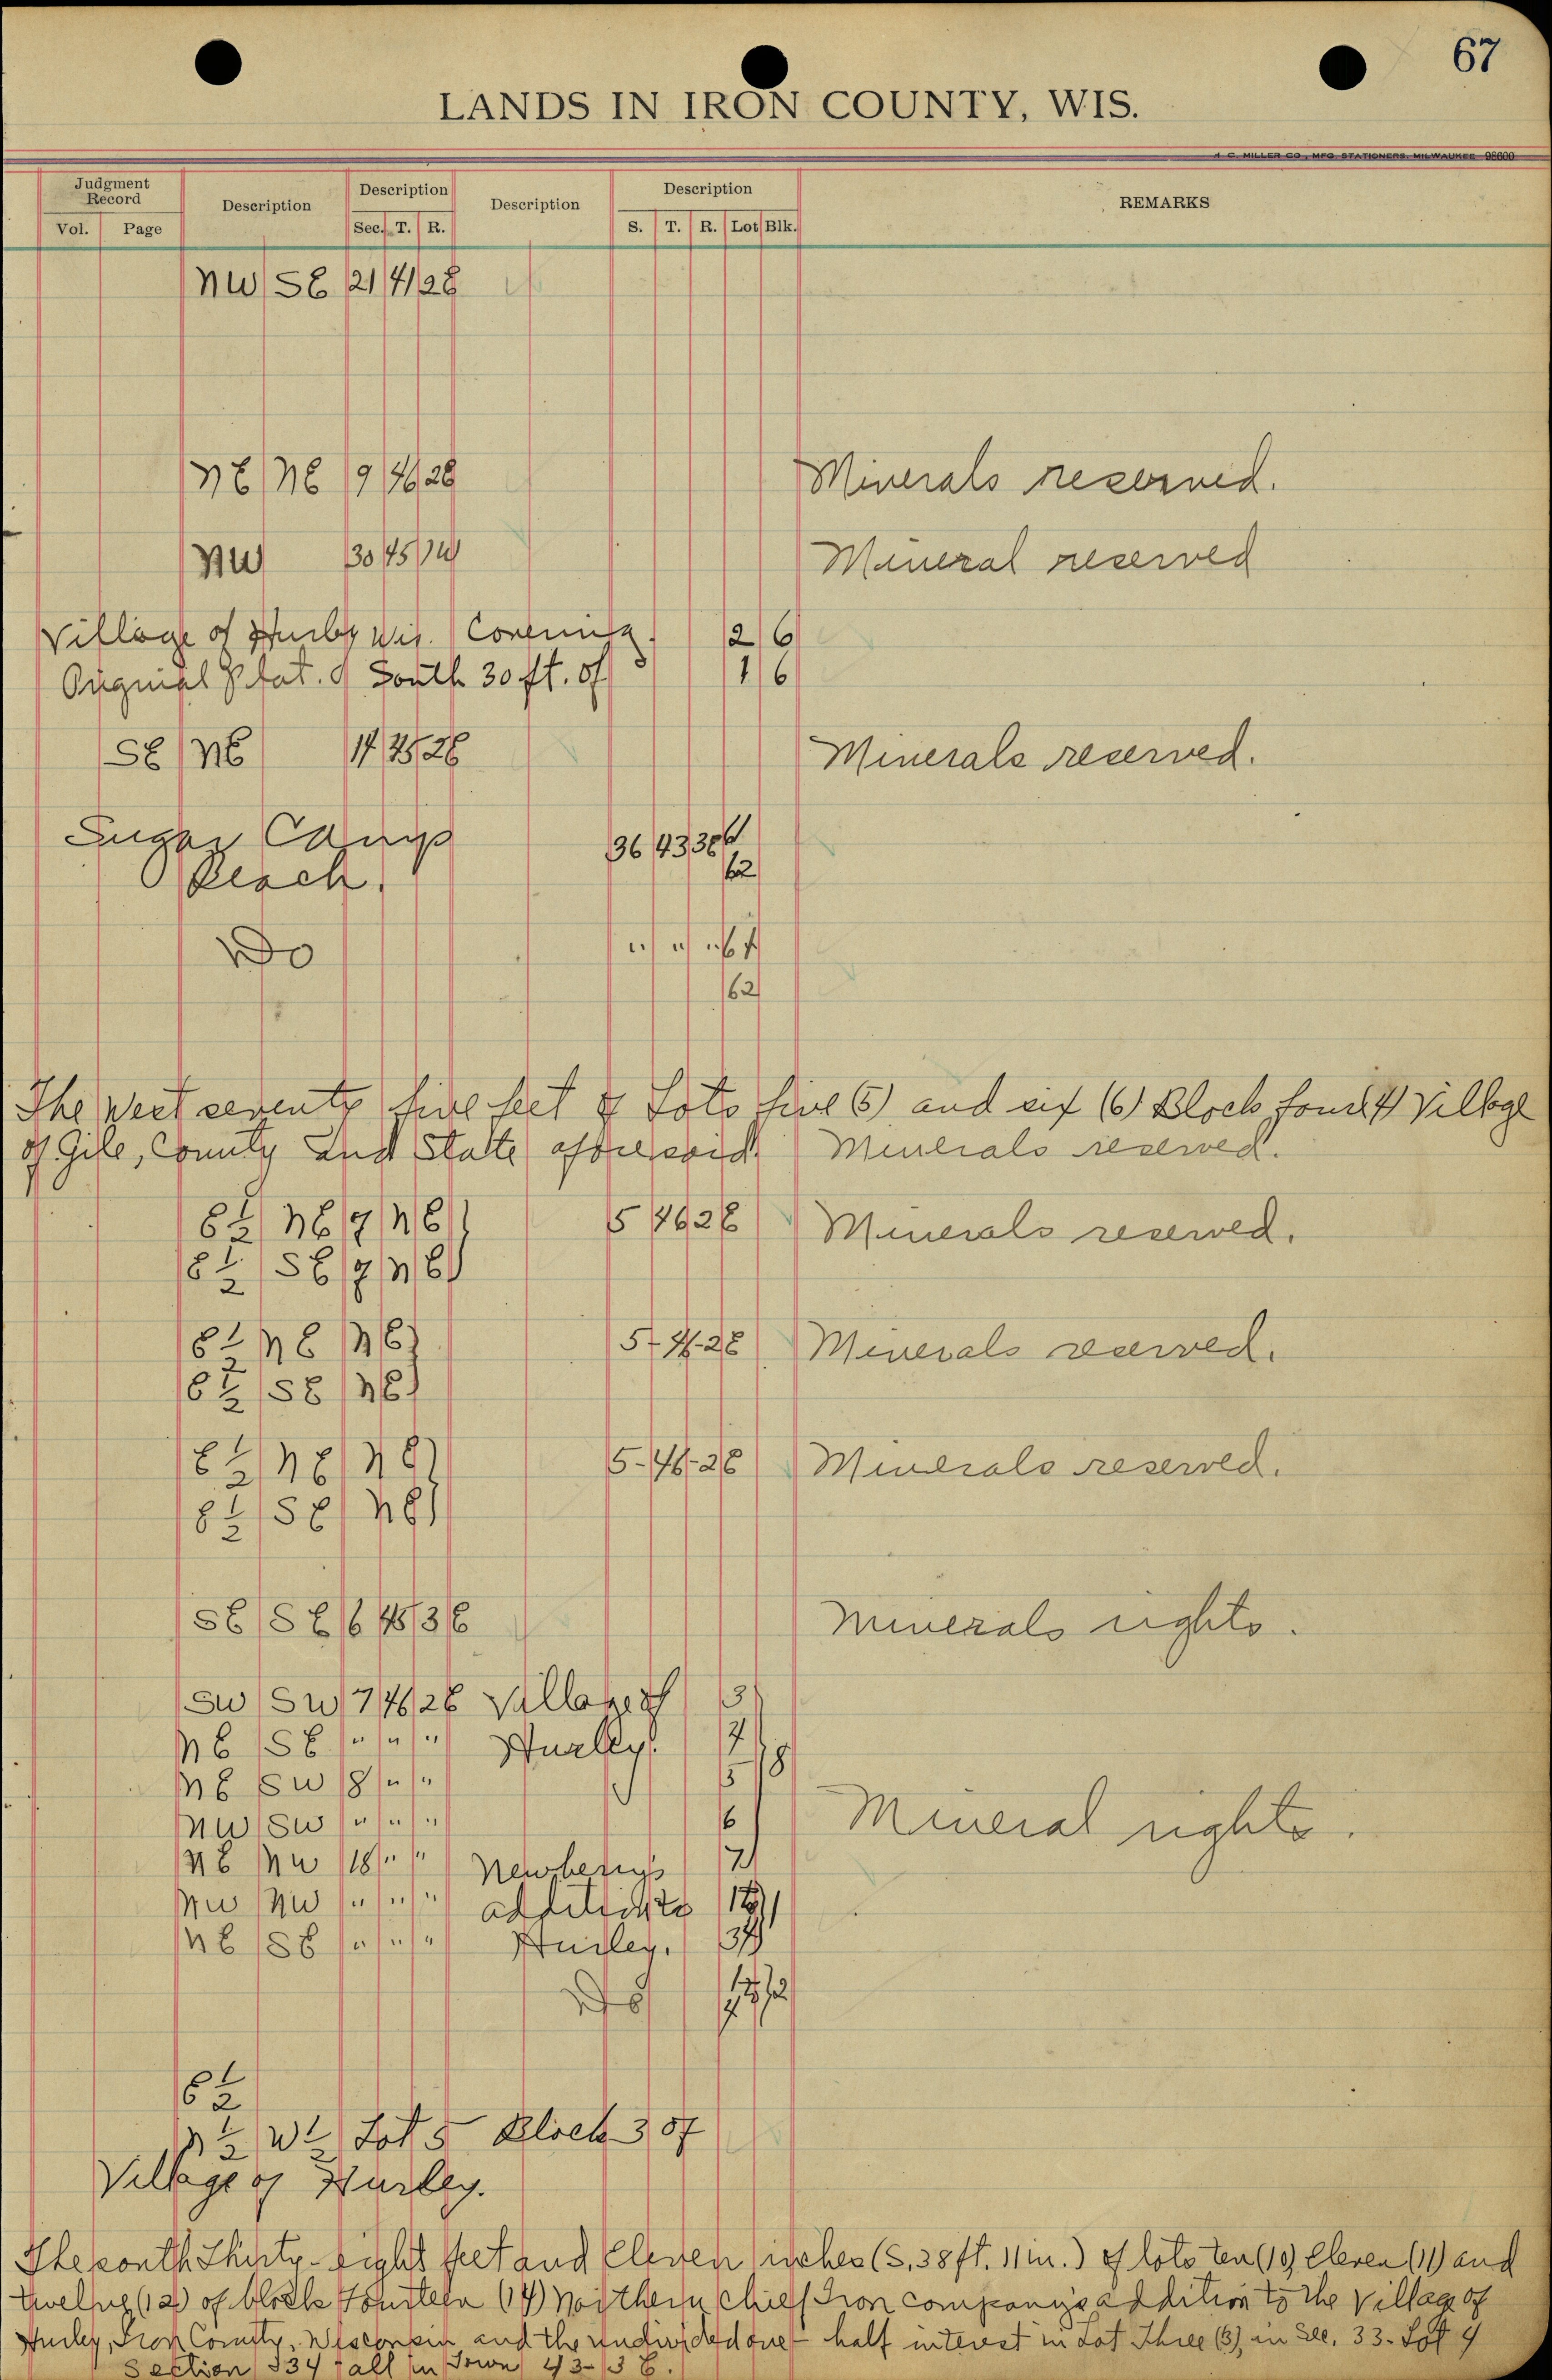 67
LANDS IN IRON COUNTY, WIS.
H. C. MILLER CO., MFG. STATIONERS, MILWAUKEE 98600
Judgment Record Description Description Description Description REMARKS
Vol. Page Sec. T. R. S. T. R. Lot Blk.
NW SE 21 41 2E
NE NE 9 46 2E Minerals reserved.
NW 30 45 1W Mineral reserved
Village of Hurley Wis. Covering. 2 6
Original Plat. of South 30 ft. of 1 6
SE NE 17 45 2E Minerals reserved.
Sugar Camp 36 43 3E 61
Beach. 62
Do " " " 61
62
The West seventy five feet of Lots five (5) and six (6) Block four (4) Village
of Gile, County and State aforesaid. Minerals reserved.
E 1/2 NE NE 5 46 2E Minerals reserved.
E 1/2 SE NE
E 1/2 NE NE 5-46-2E Minerals reserved.
E 1/2 SE NE
E 1/2 NE NE 5-46-2E Minerals reserved.
E 1/2 SE NE
SE SE 6 45 3E Minerals rights.
SW SW 7 46 2E Village of 3
NE SE " " " Hurley. 4
NE SW 8 " " 5 18
NW SW " " " 6 Mineral rights.
NE NW 18 " " Newberry's 7
NW NW " " " addition to
NE SE " " " Hurley.
Do
E 1/2
N 1/2 W 1/2 Lot 5 Block 3 of
Village of Hurley.
The south Thirty-eight feet and Eleven inches (S. 38 ft. 11 in.) of lots ten (10) Eleven (11) and
twelve (12) of block Fourteen (14) Northern Chief Iron company's addition to the Village of
Hurley, Iron County, Wisconsin, and the undivided one-half interest in Lot Three (3), in Sec. 33. Lot 4
Section 34 all in Town 43-3 E.